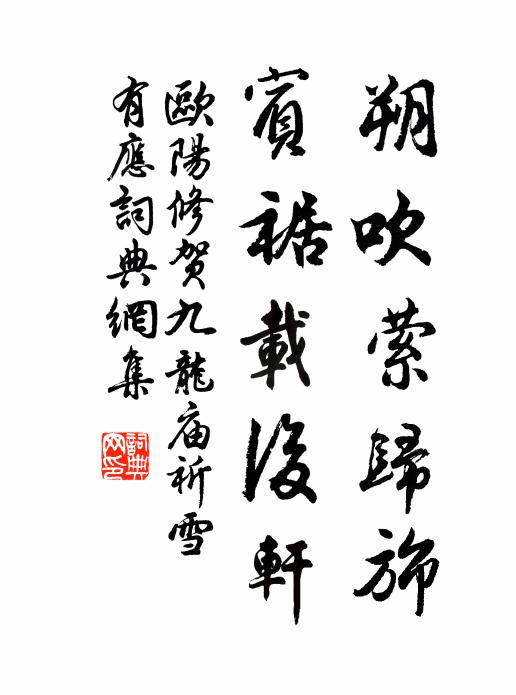 朔吹縈歸旆
賓裾載後軒
歐陽修賀九龍庙祈雪
有應詞典網集
詞典网印